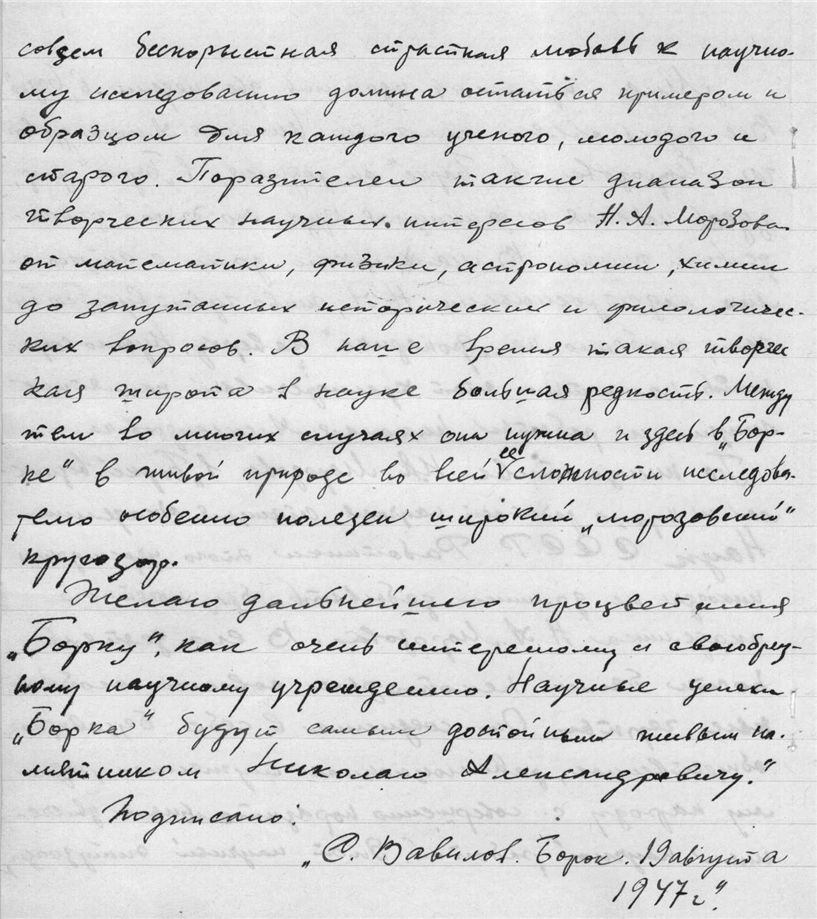 совсем бескорыстная страстная любовь к научно-
му исследованию должна остаться примером и
образцом для каждого ученого, молодого и
старого. Поразителен также диапазон
творческих научных интересов Н. А. Морозова
от математики, физики, астрономии, химии
до запутанных исторических и филологичес-
ких вопросов. В наше время такая творчес
кая широта в науке большая редкость. Между
тем во многих случаях она нужна и здесь в „Бор-
ке" в живой природе во всей ее сложности исследова-
телю особенно полезен широкий „морозовский"
кругозор.
Желаю дальнейшего процветания
„Борку", как очень интересному и своеобраз-
ному научному учреждению. Научные успехи
„Борка" будут самым достойным живым па-
мятником Николаю Александровичу."
Подписано:
„С. Вавилов. Борок. 19 августа
1947 г".